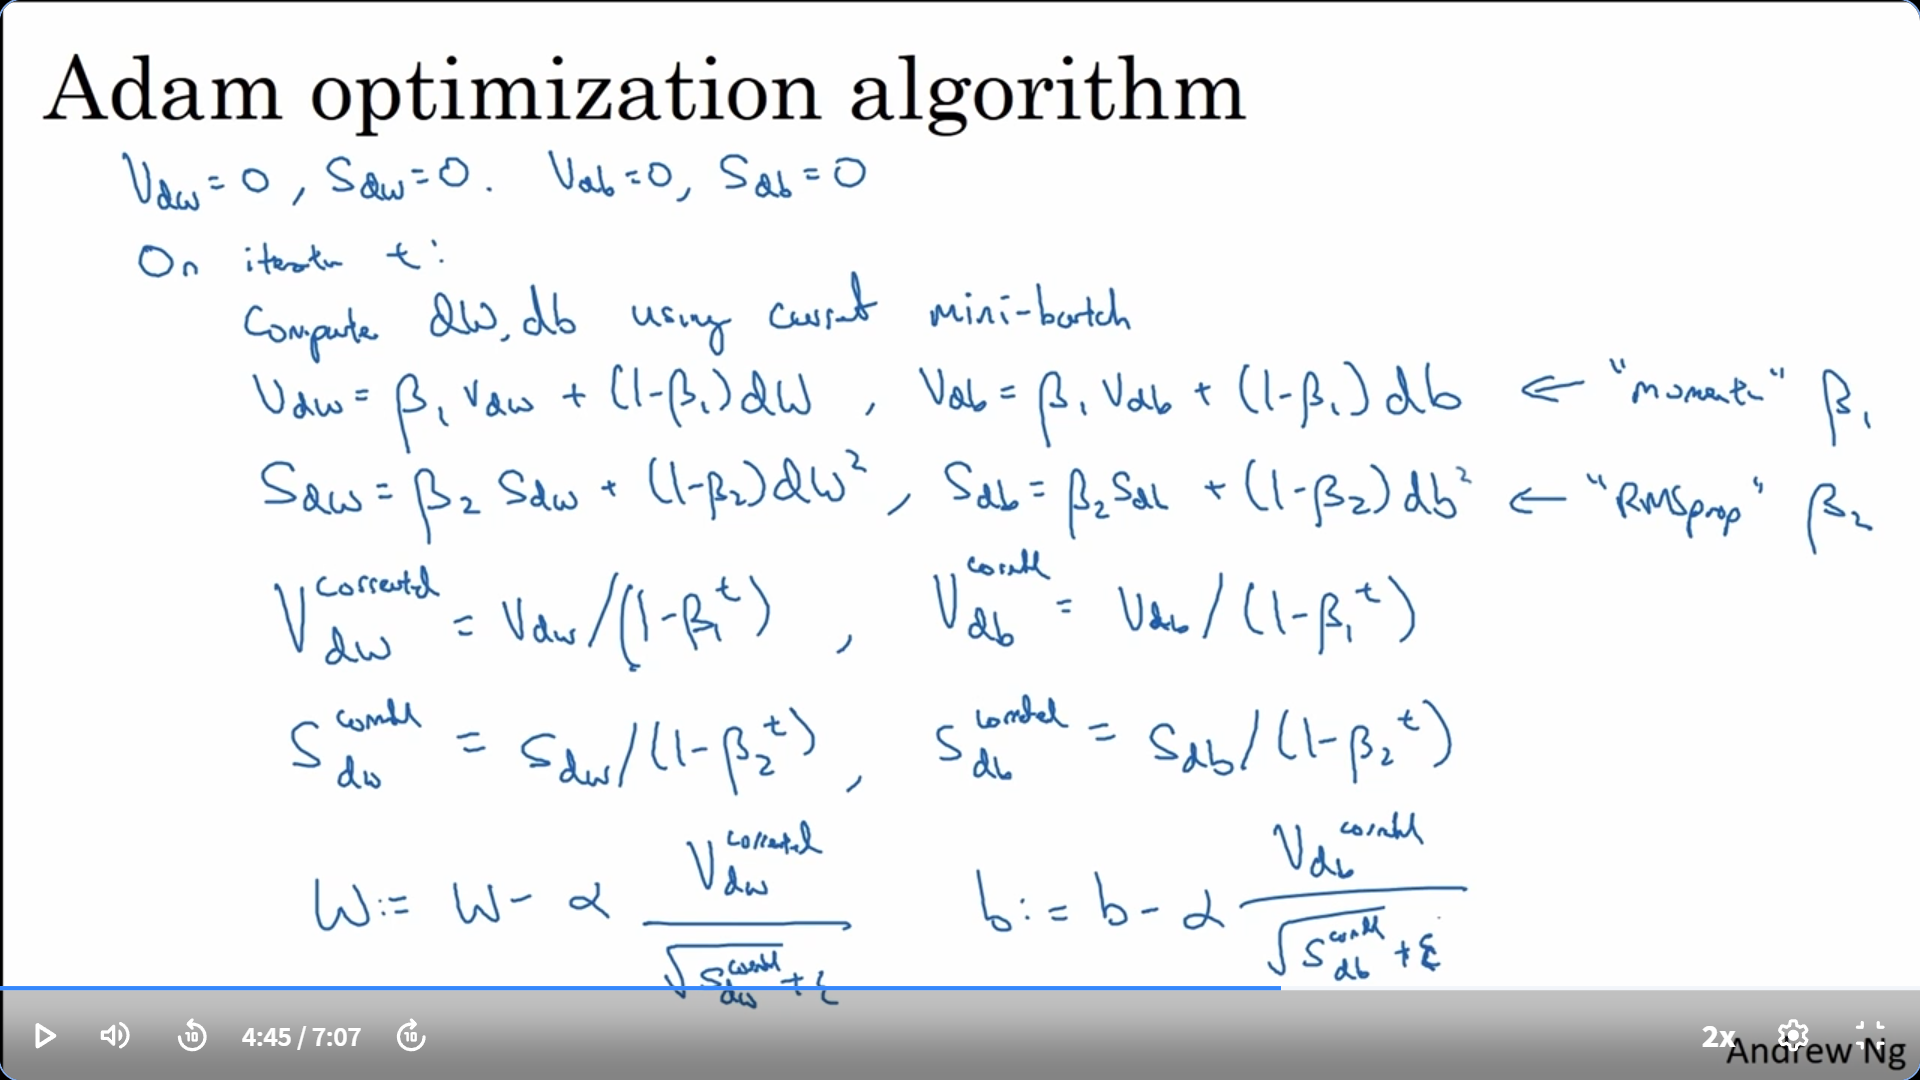 Adam optimization algorithm
V_dw = 0, S_dw = 0. V_db = 0, S_db = 0
On t:
Compute dW, db using current mini-batch
V_dw = β₁ V_dw + (1-β₁) dW , V_db = β₁ V_db + (1-β₁) db ← "moment" β₁
S_dw = β₂ S_dw + (1-β₂) dW² , S_db = β₂ S_db + (1-β₂) db² ← "RMSprop" β₂
V_dw^corrected = V_dw / (1-β₁^t) , V_db^corrected = V_db / (1-β₁^t)
S_dw^corrected = S_dw / (1-β₂^t) , S_db^corrected = S_db / (1-β₂^t)
W := W - α V_dw^corrected / (√S_dw^corrected + ε) b := b - α V_db^corrected / (√S_db^corrected + ε)
10 4:45 / 7:07 10 2x
Andrew Ng